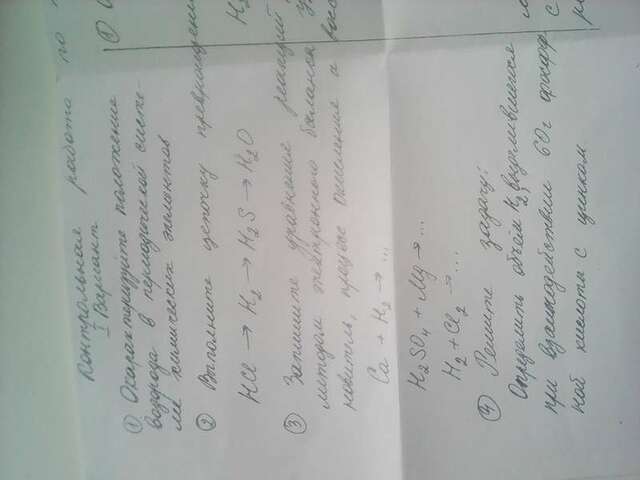 Контрольная работа по
I Вариант
① Охарактеризуйте положение
водорода в периодической систе-
ме химических элементов
② Выполните цепочку превращений
HCl → H₂ → H₂S → H₂O
③ Запишите уравнение реакций
методом электронного баланса
новитель, процесс окисления и
Ca + H₂ → ...
H₂SO₄ + Mg → ...
H₂ + Cl₂ → ...
④ Решите задачу:
Определить объём H₂, выделившегося
при взаимодействии 60г
ной кислоты с цинком
①
H₂
с